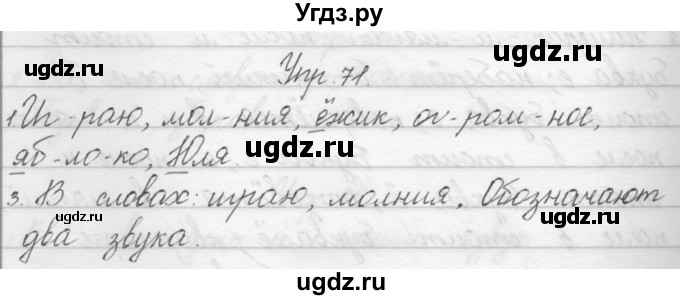 Угдз.ру
Упр. 71.
1. Иг-раю, мол-ния, ёжик, ог-ром-ное,
яб-ло-ко, Юля.
3. В словах: играю, молния. Обозначают
два звука.
ugdz.ru
ugdz.ru
ugdz.ru
ugdz.ru
ugdz.ru
ugdz.ru
ugdz.ru
ugdz.ru
ugdz.ru